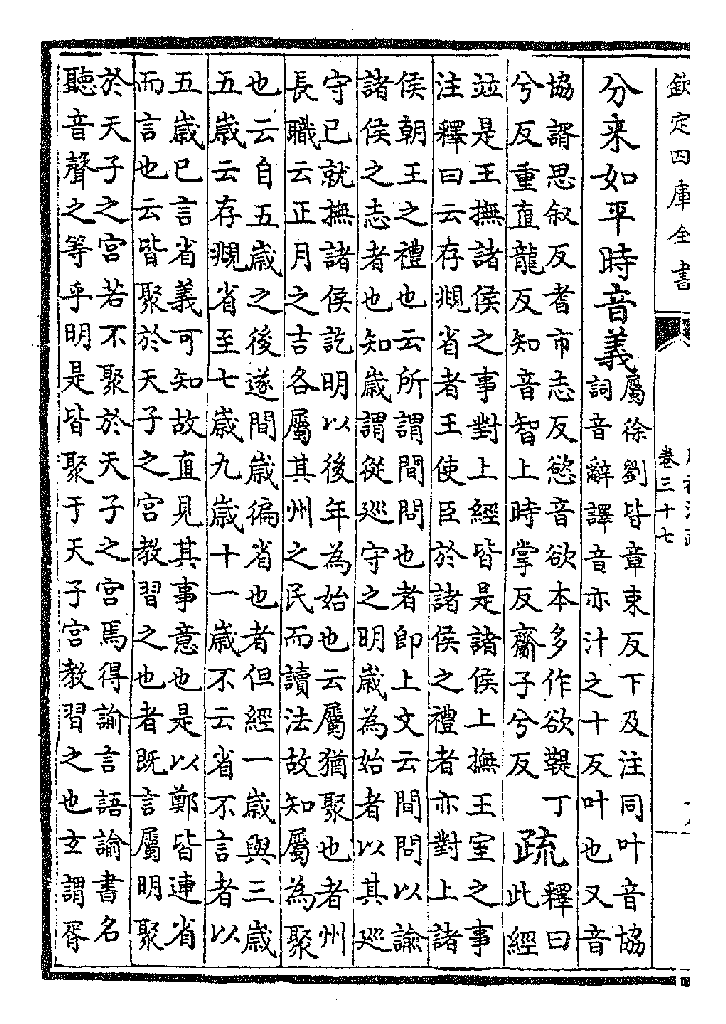 欽定四庫全書
卷三十七
分来如平時音義
屬徐劉皆章束反下及注同叶音協
詞音辭譯音亦汁之十反叶也又音
協諝思叙反耆市志反慾音欲本多作欲鞮丁
兮反重直龍反知音智上時掌反齎子兮反
疏
釋曰
此經
竝是王撫諸侯之事對上經皆是諸侯上撫王室之事
注釋曰云存覜省者王使臣於諸侯之禮者亦對上諸
侯朝王之禮也云所謂間問也者即上文云間問以諭
諸侯之志者也知歲謂從廵守之明歲為始者以其廵
守已就撫諸侯訖明以後年為始也云屬猶聚也者州
長職云正月之吉各屬其州之民而讀法故知屬為聚
也云自五歲之後遂間歲徧省也者但經一歲與三歲
五歲云存覜省至七歲九歲十一歲不云省不言者以
五歲已言省義可知故直見其事意也是以鄭皆連省
而言也云皆聚於天子之宮教習之也者既言屬明聚
於天子之宮若不聚於天子之宮焉得諭言語諭書名
聽音聲之等乎明是皆聚于天子宮教習之也玄謂胥